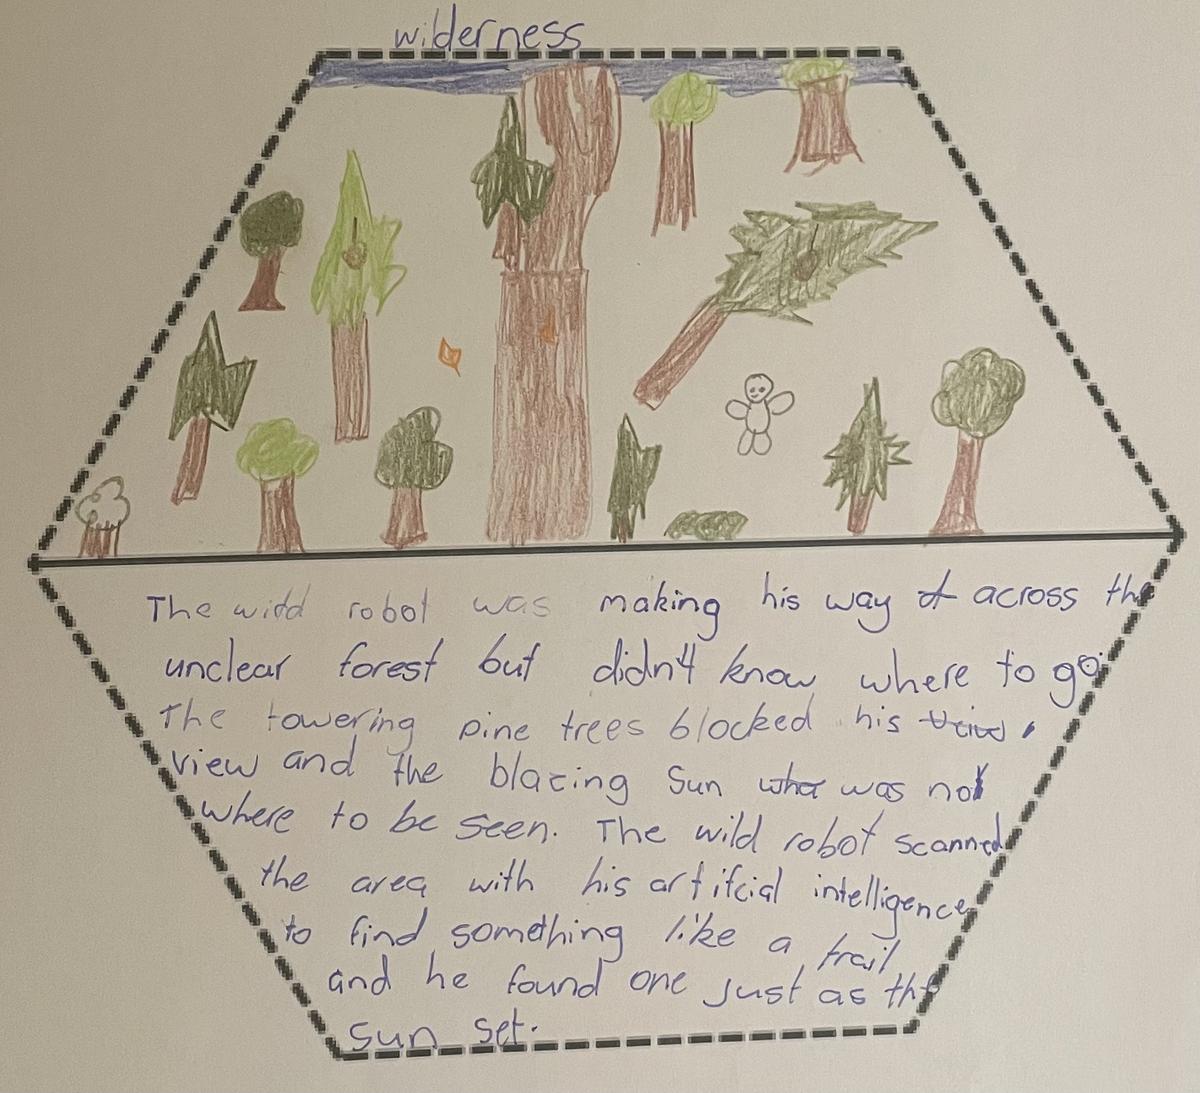 wilderness
The wild robot was making his way across the
unclear forest but didn't know where to go.
The towering pine trees blocked his
view and the blazing sun was not
where to be seen. The wild robot scanned
the area with his artifcial intelligence
to find something like a trail
and he found one just as the
sun set.